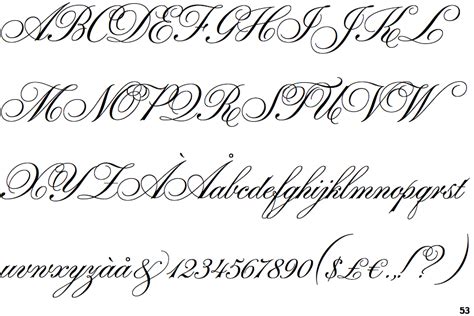 ABCDEFGHIJKL
MNOPQRSTUVW
XYZÀÅabcdefghijklmnopqrst
uvwxyzàå&1234567890($£€.,!?)
53